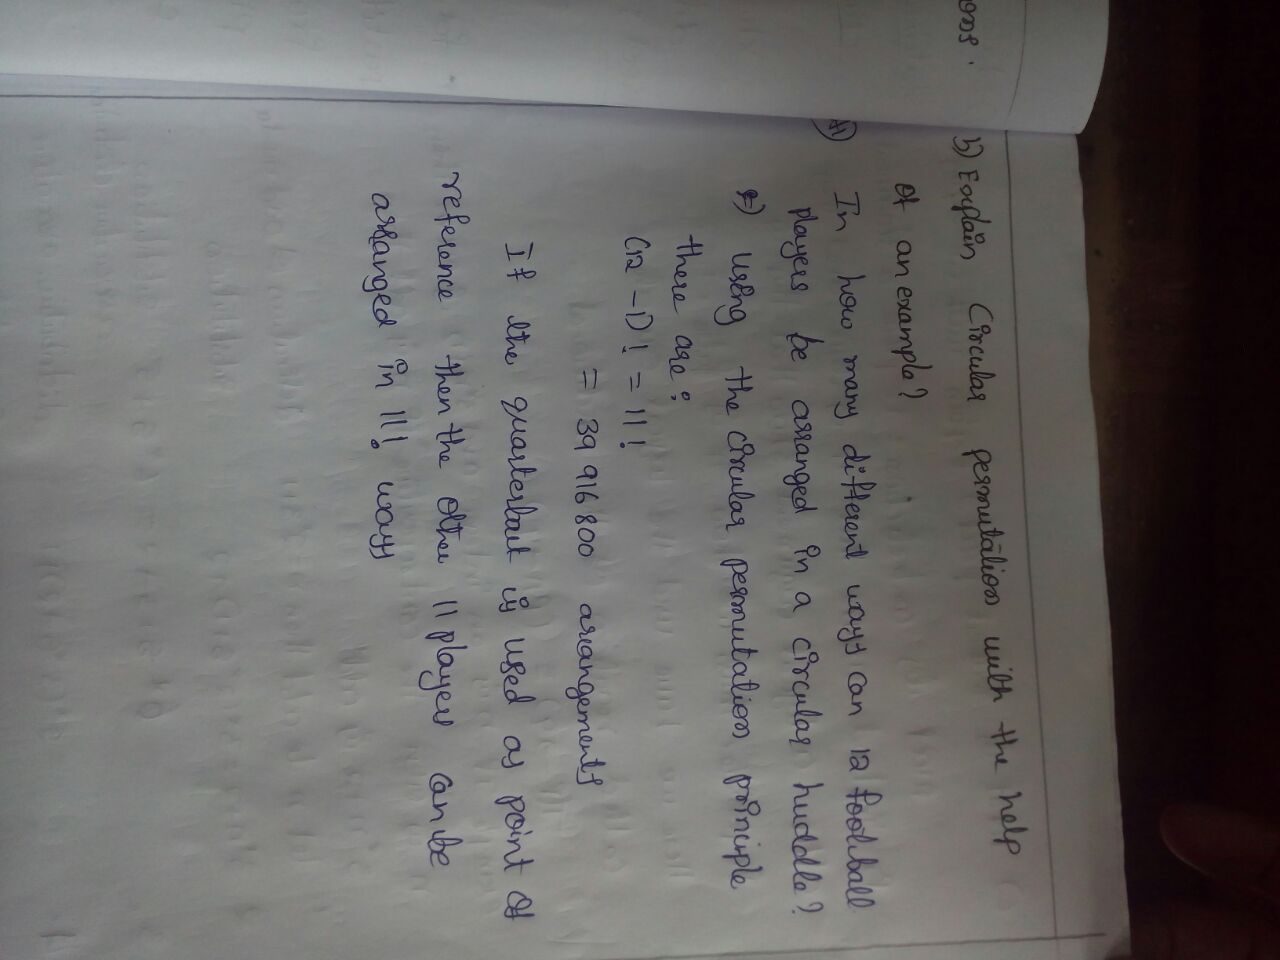 ons.
b) Explain Circular permutation with the help
of an example?
A) In how many different ways can 12 football
players be arranged in a circular huddle?
using the circular permutation principle
there are:
(12-1)! = 11!
= 39 916 800 arrangements
If the quarterback is used as point of
reference then the other 11 players can be
arranged in 11! ways